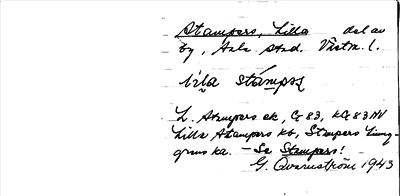 Stampers, Lilla del av
by, Sala stad. Västm. l.
lila stámpəʂ
L. Stampers ek, G 83, KG 83 NV
Lilla Stampers kb, Stampers Ljung-
grens ka. - Se Stampers!
G. Qvarnström 1943